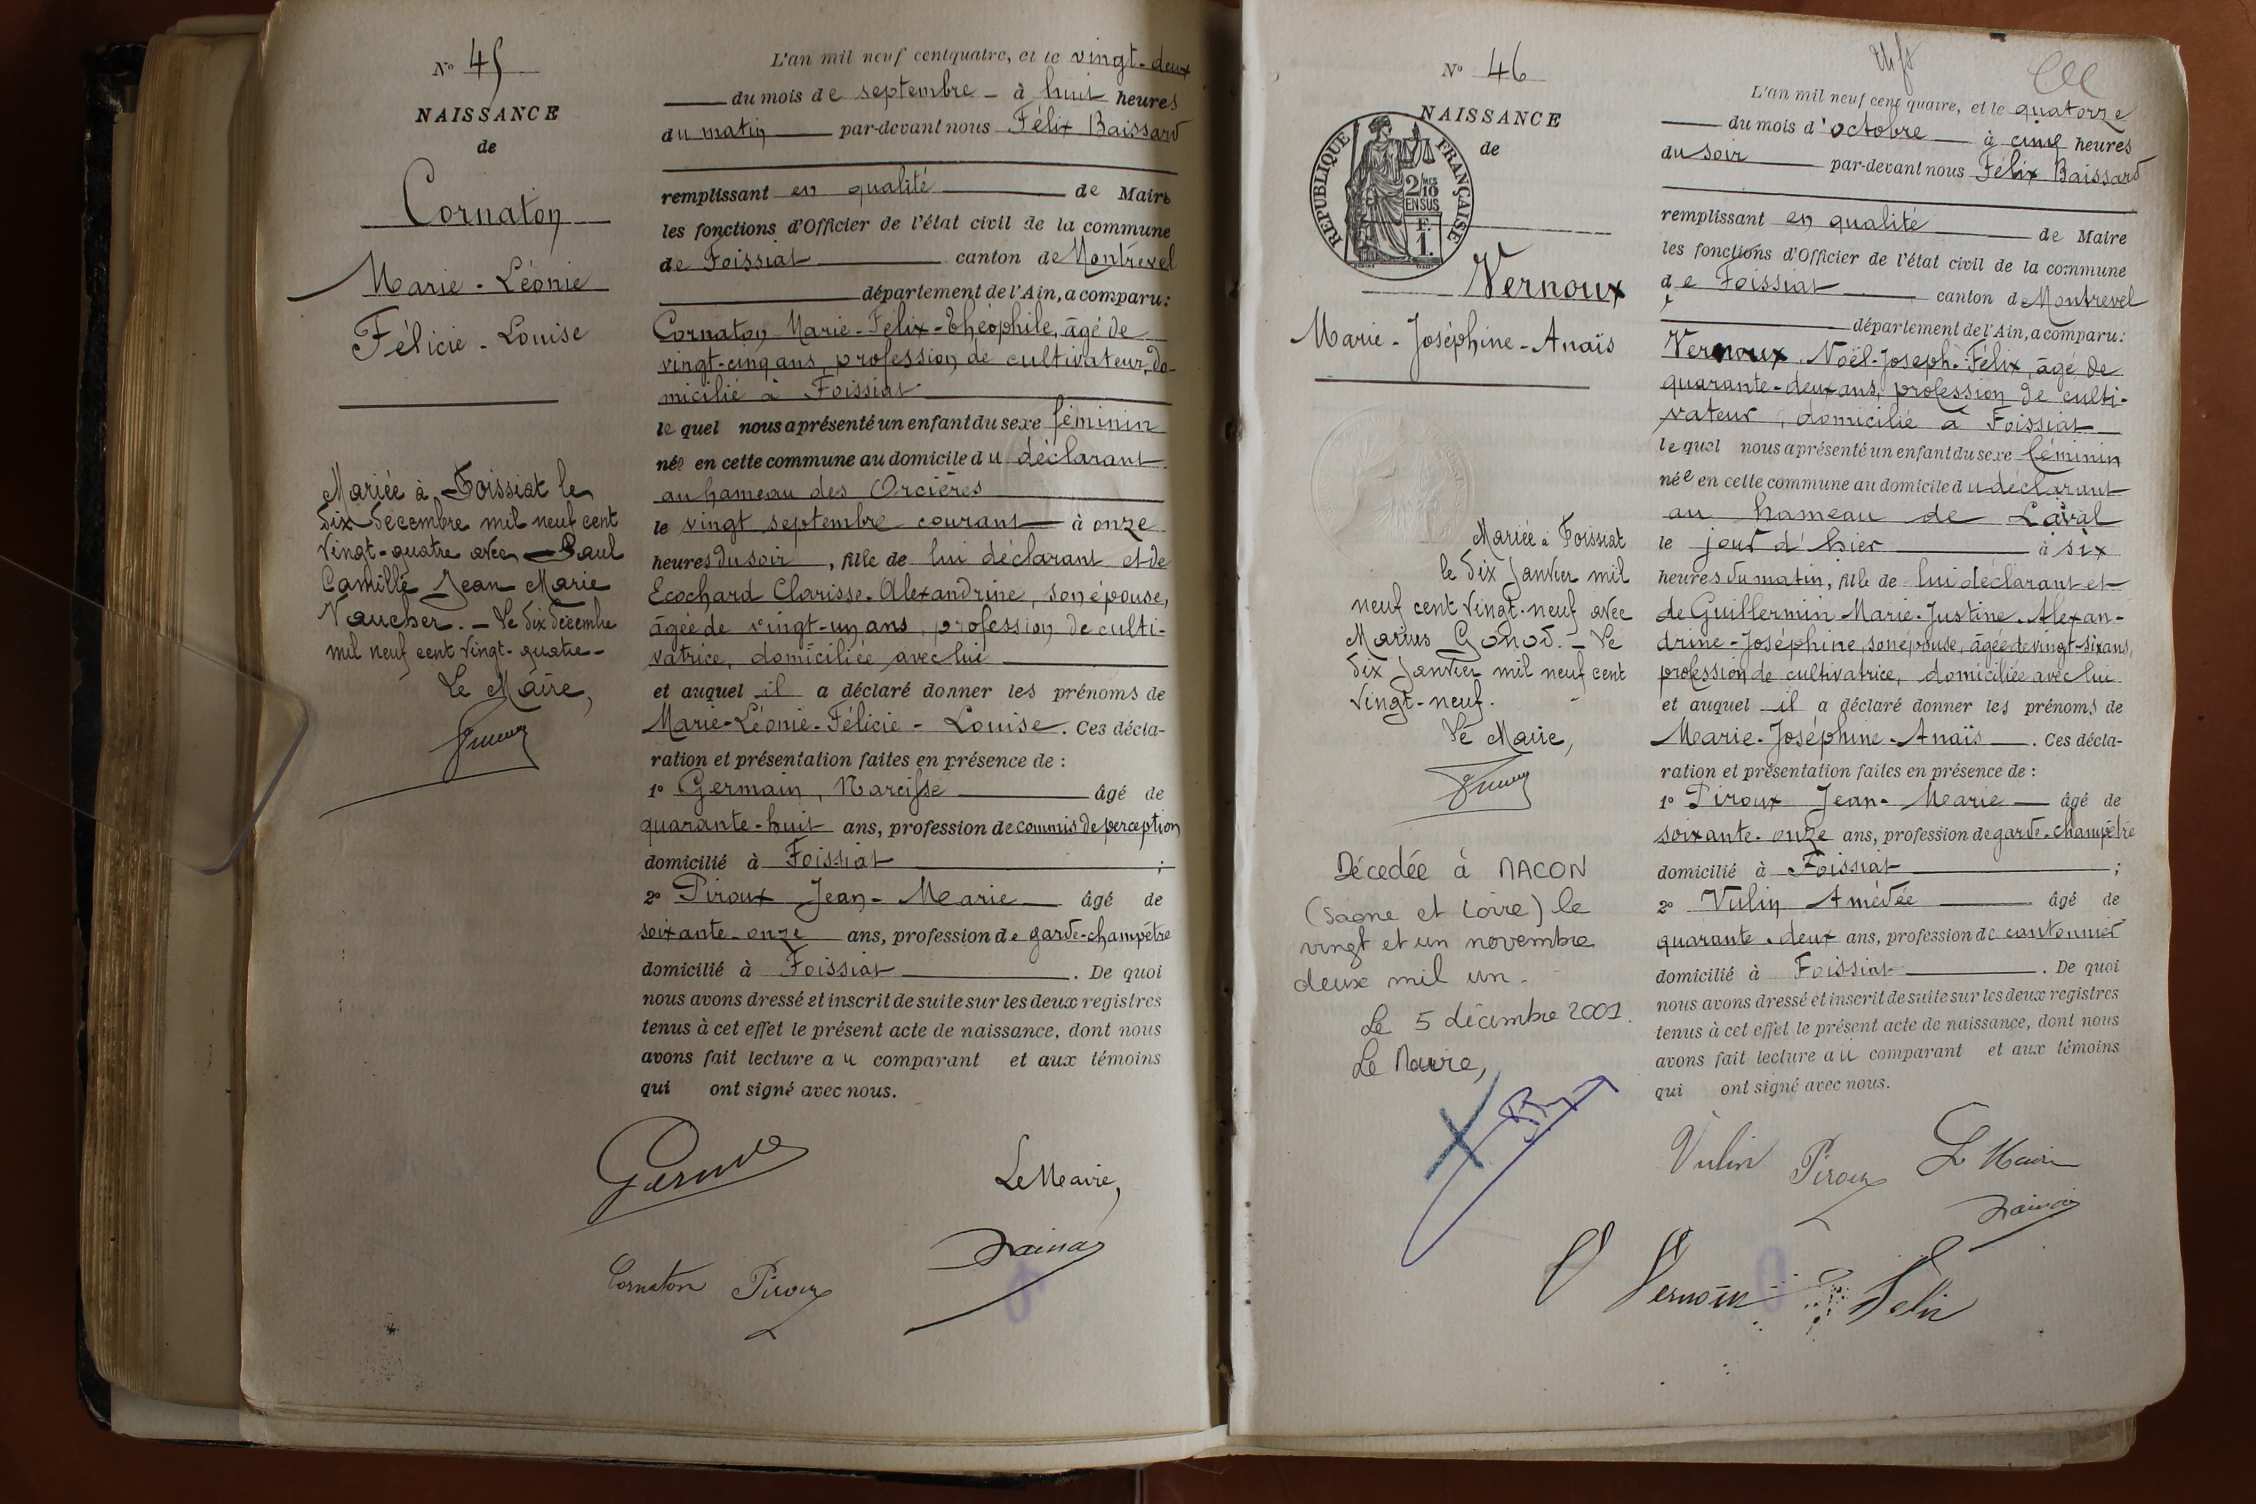 N° 45
NAISSANCE
de
Cornaton
Marie-Léonie
Félicie-Louise
Mariée à Foissiat le
dix décembre mil neuf cent
vingt-quatre avec Paul
Camille Jean Marie
Vaucher. - Le dix décembre
mil neuf cent vingt-quatre -
Le Maire,
L'an mil neuf cent quatre, et le vingt-deux
du mois de septembre - à huit heures
du matin par-devant nous Félix Baissard
remplissant en qualité de Maire
les fonctions d'Officier de l'état civil de la commune
de Foissiat canton de Montrevel
département de l'Ain, a comparu :
Cornaton Marie-Félix-Théophile, âgé de
vingt-cinq ans, profession de cultivateur, do-
micilié à Foissiat
lequel nous a présenté un enfant du sexe féminin
née en cette commune au domicile du déclarant
au hameau des Orcières
le vingt septembre courant à onze
heures du soir, fille de lui déclarant et de
Ecochard Clarisse-Alexandrine, son épouse,
âgée de vingt-un ans, profession de culti-
vatrice, domiciliée avec lui
et auquel il a déclaré donner les prénoms de
Marie-Léonie-Félicie-Louise. Ces décla-
ration et présentation faites en présence de :
1° Germain, Narcisse âgé de
quarante-huit ans, profession de commis de perception
domicilié à Foissiat ;
2° Piroux Jean-Marie âgé de
soixante-onze ans, profession de garde-champêtre
domicilié à Foissiat. De quoi
nous avons dressé et inscrit de suite sur les deux registres
tenus à cet effet le présent acte de naissance, dont nous
avons fait lecture au comparant et aux témoins
qui ont signé avec nous.
Le Maire,
Cornaton Piroux
N° 46
NAISSANCE
de
REPUBLIQUE FRANÇAISE
2/10 MES
EN SUS
F.
1.
Vernoux
Marie-Joséphine-Anaïs
Mariée à Foissiat
le dix janvier mil
neuf cent vingt-neuf avec
Marius Gonod. - Le
dix janvier mil neuf cent
vingt-neuf.
Le Maire,
Décedée à MACON
(Saone et Loire) le
vingt et un novembre
deux mil un.
Le 5 décembre 2001.
Le Maire,
L'an mil neuf cent quatre, et le quatorze
du mois d'octobre à cinq heures
du soir par-devant nous Félix Baissard
remplissant en qualité de Maire
les fonctions d'Officier de l'état civil de la commune
de Foissiat canton de Montrevel
département de l'Ain, a comparu :
Vernoux Noël-Joseph-Félix, âgé de
quarante-deux ans, profession de culti-
vateur, domicilié à Foissiat
lequel nous a présenté un enfant du sexe féminin
née en cette commune au domicile du déclarant
au hameau de Laval
le jour d'hier à six
heures du matin, fille de lui déclarant et
de Guillermin Marie-Justine-Alexan-
drine-Joséphine, son épouse, âgée de vingt-six ans,
profession de cultivatrice, domiciliée avec lui
et auquel il a déclaré donner les prénoms de
Marie-Joséphine-Anaïs. Ces décla-
ration et présentation faites en présence de :
1° Piroux Jean-Marie âgé de
soixante-onze ans, profession de garde-champêtre
domicilié à Foissiat ;
2° Vulin Amédée âgé de
quarante-deux ans, profession de cantonnier
domicilié à Foissiat. De quoi
nous avons dressé et inscrit de suite sur les deux registres
tenus à cet effet le présent acte de naissance, dont nous
avons fait lecture au comparant et aux témoins
qui ont signé avec nous.
Vulin Piroux Le Maire
Vernoux Félix